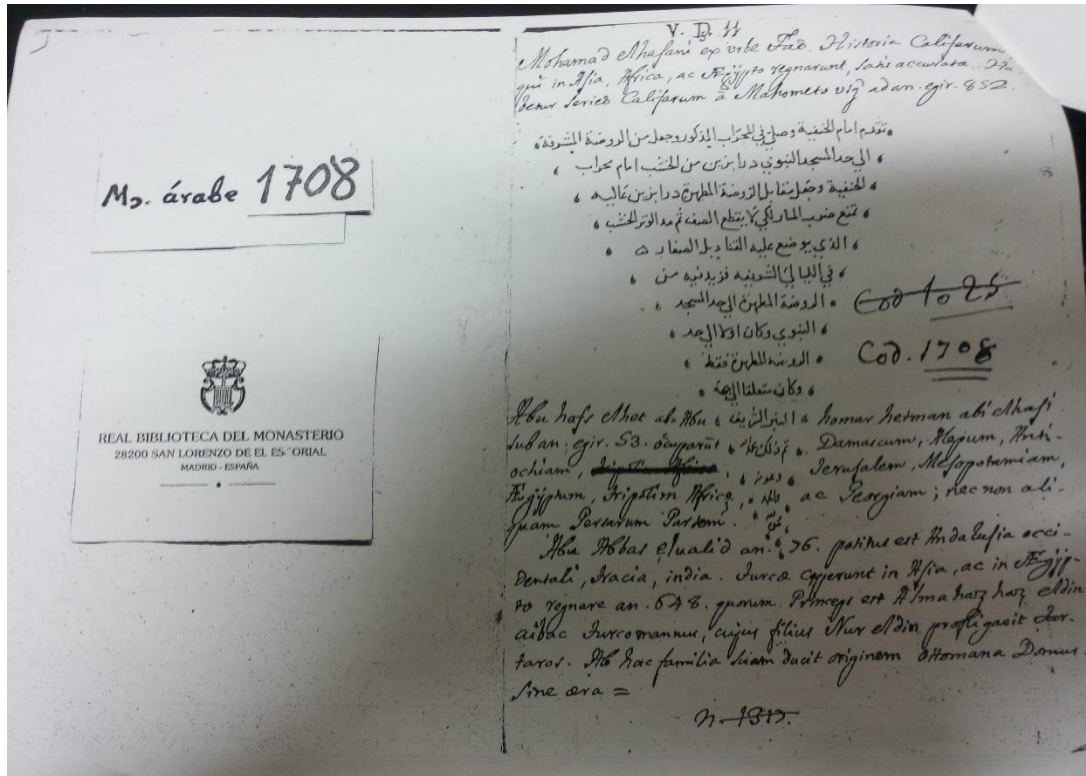 Ms. árabe 1708
REAL BIBLIOTECA DEL MONASTERIO
28200 SAN LORENZO DE EL ES ORIAL
MADRID - ESPAÑA
V. D. 11
Mohamad ex urbe Historia Califarum
qui in Asia, Africa, ac Ægypto regnarunt, satis accurata.
Series Califarum à Mahometo ad an. egir. 852.
تقدم امام الحنفية وصلى في المحراب المذكور وجعل من الروضة المشرفة
الى حد المسجد النبوي درابزين من الخشب امام محراب
الحنفية وجعل مقابل الروضة المطهرة درابزين عاليه
تمنع الصف ثم مد الوتر الخشب
الذي يوضع عليه القناديل
في الليالي الشريفه فزيد فيه من
الروضة المطهرة الى حد المسجد
النبوي وكان اولا الى حد
الروضة المطهرة فقط
وكان
Cod 1025
Cod. 1708
Abu hafs المنبر الشريف homar
sub an. egir. 53. occuparũt Damascum, Alapum, Anti-
ochiam, Jerusalem, Mesopotamiam,
Ægÿptum, Tripolim Africæ, ac Georgiam; nec non ali-
quam Persarum Partem.
Abu Abbas elualid an. 76. potitus est Andalusia occi-
dentali, Tracia, india. Turcæ cæperunt in Asia, ac in Ægÿp-
to regnare an. 648. quorum Princeps est eldin
aibac Turcomannus, cujus filius Nur eldin profligavit Tar-
taros. Ab hac familia suam ducit originem Ottomana Domus.
Sine æra =